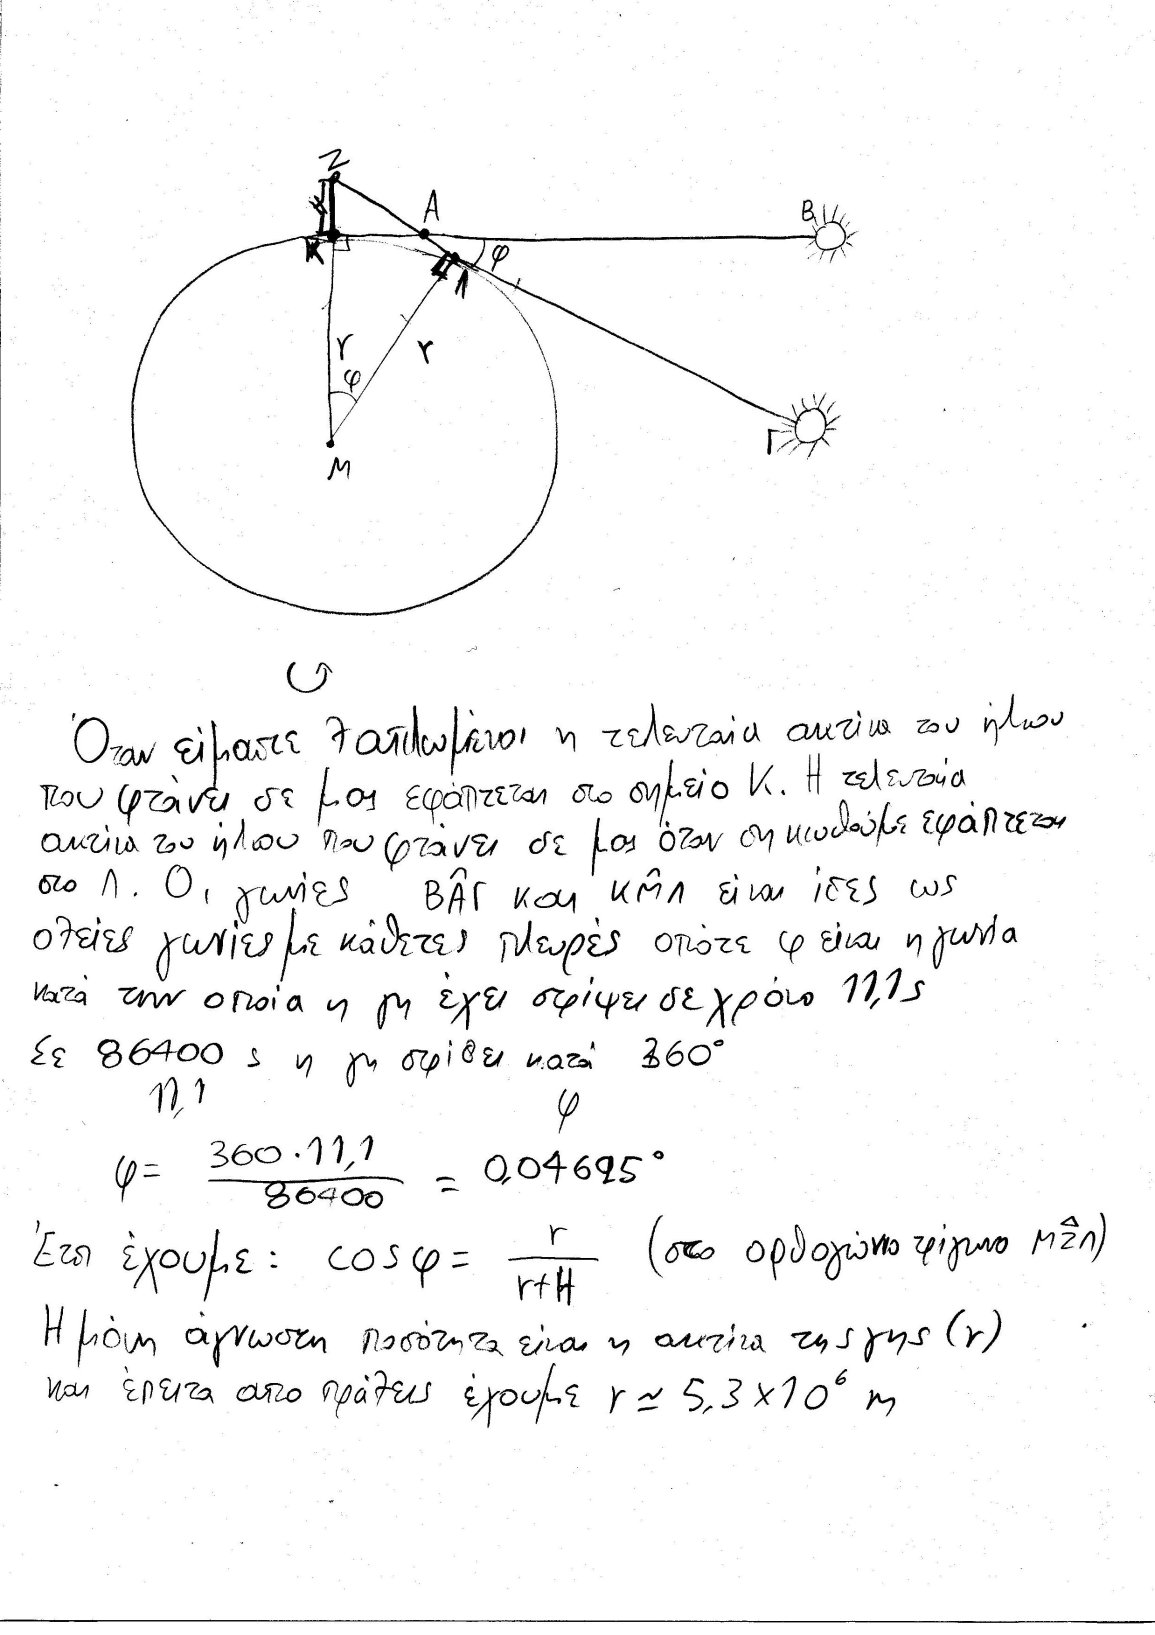 Z
H
A
B
K
φ
Λ
r
r
φ
Γ
M
Όταν είμαστε ξαπλωμένοι η τελευταία ακτίνα του ήλιου
που φτάνει σε μας εφάπτεται στο σημείο Κ. Η τελευταία
ακτίνα του ήλιου που φτάνει σε μας όταν σηκωθούμε εφάπτεται
στο Λ. Οι γωνίες ΒÂΓ και ΚM̂Λ είναι ίσες ως
οξείες γωνίες με κάθετες πλευρές οπότε φ είναι η γωνία
κατά την οποία η γη έχει στρίψει σε χρόνο 11,1s
Σε 86400 s η γη στρίβει κατά 360°
11,1 φ
φ= 360·11,1 / 86400 = 0,04625°
Έτσι έχουμε: cosφ= r / r+H (στο ορθογώνιο τρίγωνο ΜẐΛ)
Η μόνη άγνωστη ποσότητα είναι η ακτίνα της γης (r)
και έπειτα απο πράξεις έχουμε r ≃ 5,3×10⁶ m